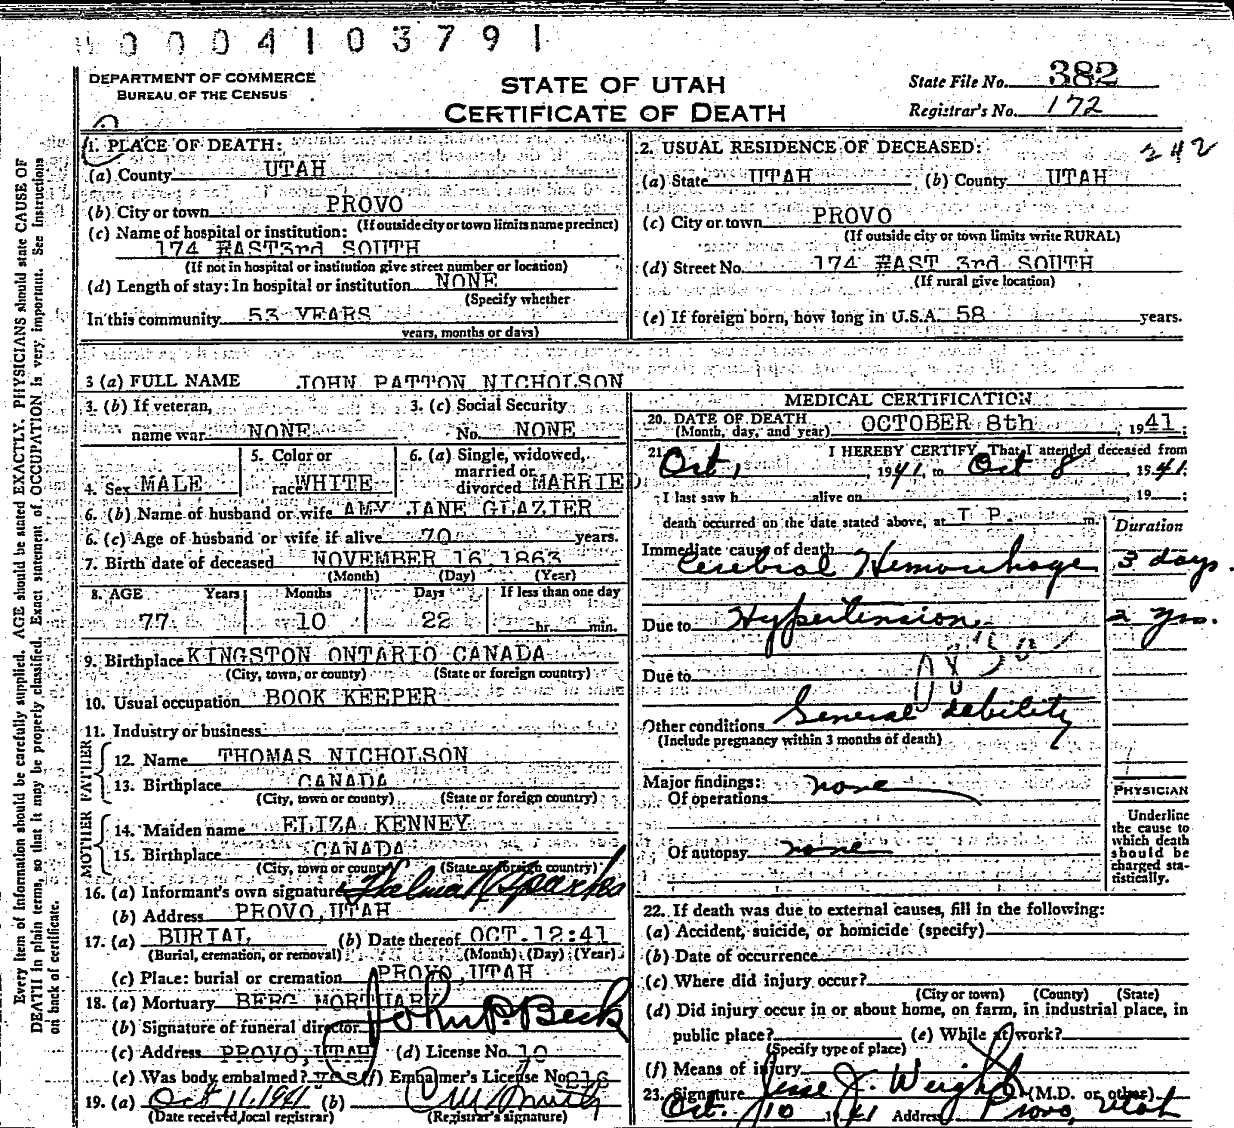 0004103791
DEPARTMENT OF COMMERCE
BUREAU OF THE CENSUS
STATE OF UTAH
CERTIFICATE OF DEATH
State File No. 382
Registrar's No. 172
242
Every item of information should be carefully supplied. AGE should be stated EXACTLY. PHYSICIANS should state CAUSE OF
DEATH in plain terms, so that it may be properly classified. Exact statement of OCCUPATION is very important. See instructions
on back of certificate.
1. PLACE OF DEATH:
(a) County UTAH
(b) City or town PROVO
(If outside city or town limits name precinct)
(c) Name of hospital or institution:
174 EAST 3rd SOUTH
(If not in hospital or institution give street number or location)
(d) Length of stay: In hospital or institution NONE
(Specify whether
In this community 53 YEARS
years, months or days)
2. USUAL RESIDENCE OF DECEASED:
(a) State UTAH (b) County UTAH
(c) City or town PROVO
(If outside city or town limits write RURAL)
(d) Street No. 174 EAST 3rd SOUTH
(If rural give location)
(e) If foreign born, how long in U.S.A. 58 years.
3 (a) FULL NAME JOHN PATTON NICHOLSON
3. (b) If veteran, name war NONE
3. (c) Social Security No. NONE
4. Sex MALE
5. Color or race WHITE
6. (a) Single, widowed, married or divorced MARRIED
6. (b) Name of husband or wife AMY JANE GLAZIER
6. (c) Age of husband or wife if alive 70 years.
7. Birth date of deceased NOVEMBER 16 1863
(Month) (Day) (Year)
8. AGE Years Months Days If less than one day
77 10 22 hr. min.
9. Birthplace KINGSTON ONTARIO CANADA
(City, town, or county) (State or foreign country)
10. Usual occupation BOOK KEEPER
11. Industry or business
FATHER
12. Name THOMAS NICHOLSON
13. Birthplace CANADA
(City, town or county) (State or foreign country)
MOTHER
14. Maiden name ELIZA KENNEY
15. Birthplace CANADA
(City, town or county) (State or foreign country)
16. (a) Informant's own signature Thelma N
(b) Address PROVO, UTAH
17. (a) BURIAL (b) Date thereof OCT. 12:41
(Burial, cremation, or removal) (Month) (Day) (Year)
(c) Place: burial or cremation PROVO, UTAH
18. (a) Mortuary BERG MORTUARY
(b) Signature of funeral director John P. Beck
(c) Address PROVO, UTAH (d) License No. 10
(e) Was body embalmed? YES (f) Embalmer's License No. 216
19. (a) Oct 11, 1941 (b)
(Date received, local registrar) (Registrar's signature)
MEDICAL CERTIFICATION
20. DATE OF DEATH OCTOBER 8th, 1941;
(Month, day, and year)
21. I HEREBY CERTIFY, That I attended deceased from
Oct, 1941, to Oct 8 1941.
I last saw h alive on , 19 ;
death occurred on the date stated above, at 1 P. m.
Duration
Immediate cause of death
Cerebral Hemorrhage 3 days.
Due to Hypertension 2 yrs.
Due to
Other conditions General debility
(Include pregnancy within 3 months of death)
Major findings:
Of operations none
Of autopsy none
PHYSICIAN
Underline
the cause to
which death
should be
charged sta-
tistically.
22. If death was due to external causes, fill in the following:
(a) Accident, suicide, or homicide (specify)
(b) Date of occurrence
(c) Where did injury occur?
(City or town) (County) (State)
(d) Did injury occur in or about home, on farm, in industrial place, in
public place? (e) While at work?
(Specify type of place)
(f) Means of injury
23. Signature Jesse J. Weight (M.D. or other)
Oct. 10 1941 Address Provo, Utah